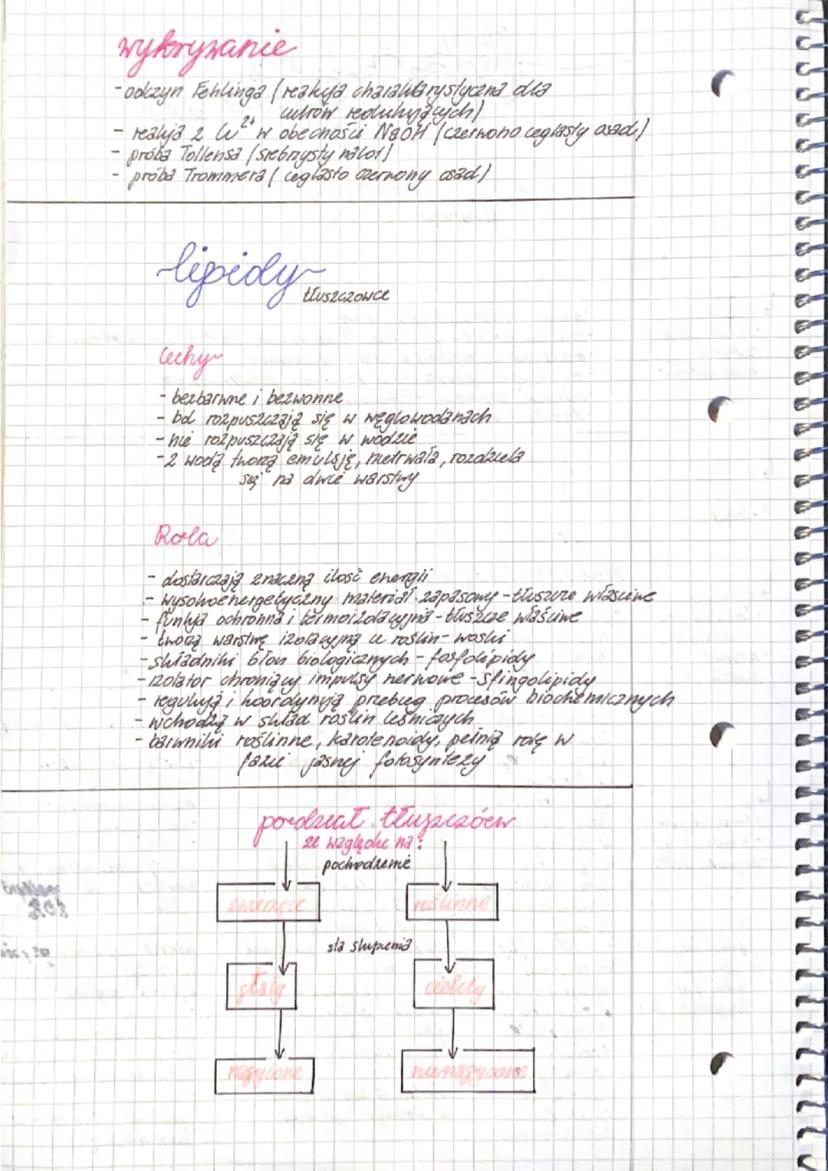 wykrywanie
- odczyn Fehlinga (reakcja charakterystyczna dla
cukrów redukujących)
- reakcja z Cu²⁺ w obecności NaOH (czerwono ceglasty osad)
- próba Tollensa (srebrzysty nalot)
- próba Trommera (ceglasto czerwony osad)
~lipidy~
tłuszczowce
Cechy
- bezbarwne i bezwonne
- bd rozpuszczają się w węglowodanach
- nie rozpuszczają się w wodzie
- z wodą tworzą emulsję, nietrwała, rozdziela
się na dwie warstwy
Rola
- dostarczają znaczną ilość energii
- wysokoenergetyczny materiał zapasowy - tłuszcze właściwe
- funkcja ochronna i termoizolacyjna - tłuszcze właściwe
- tworzą warstwę izolacyjną u roślin - woski
- składniki błon biologicznych - fosfolipidy
- izolator chroniący impulsy nerwowe - sfingolipidy
- regulują i koordynują przebieg procesów biochemicznych
- wchodzą w skład roślin leśniczych
- barwniki roślinne, karotenoidy, pełnią rolę w
fazie jasnej fotosyntezy
podział tłuszczów
ze względu na:
pochodzenie
zwierzęce roślinne
sta skupienia
stały ciekły
nasycone nienasycone